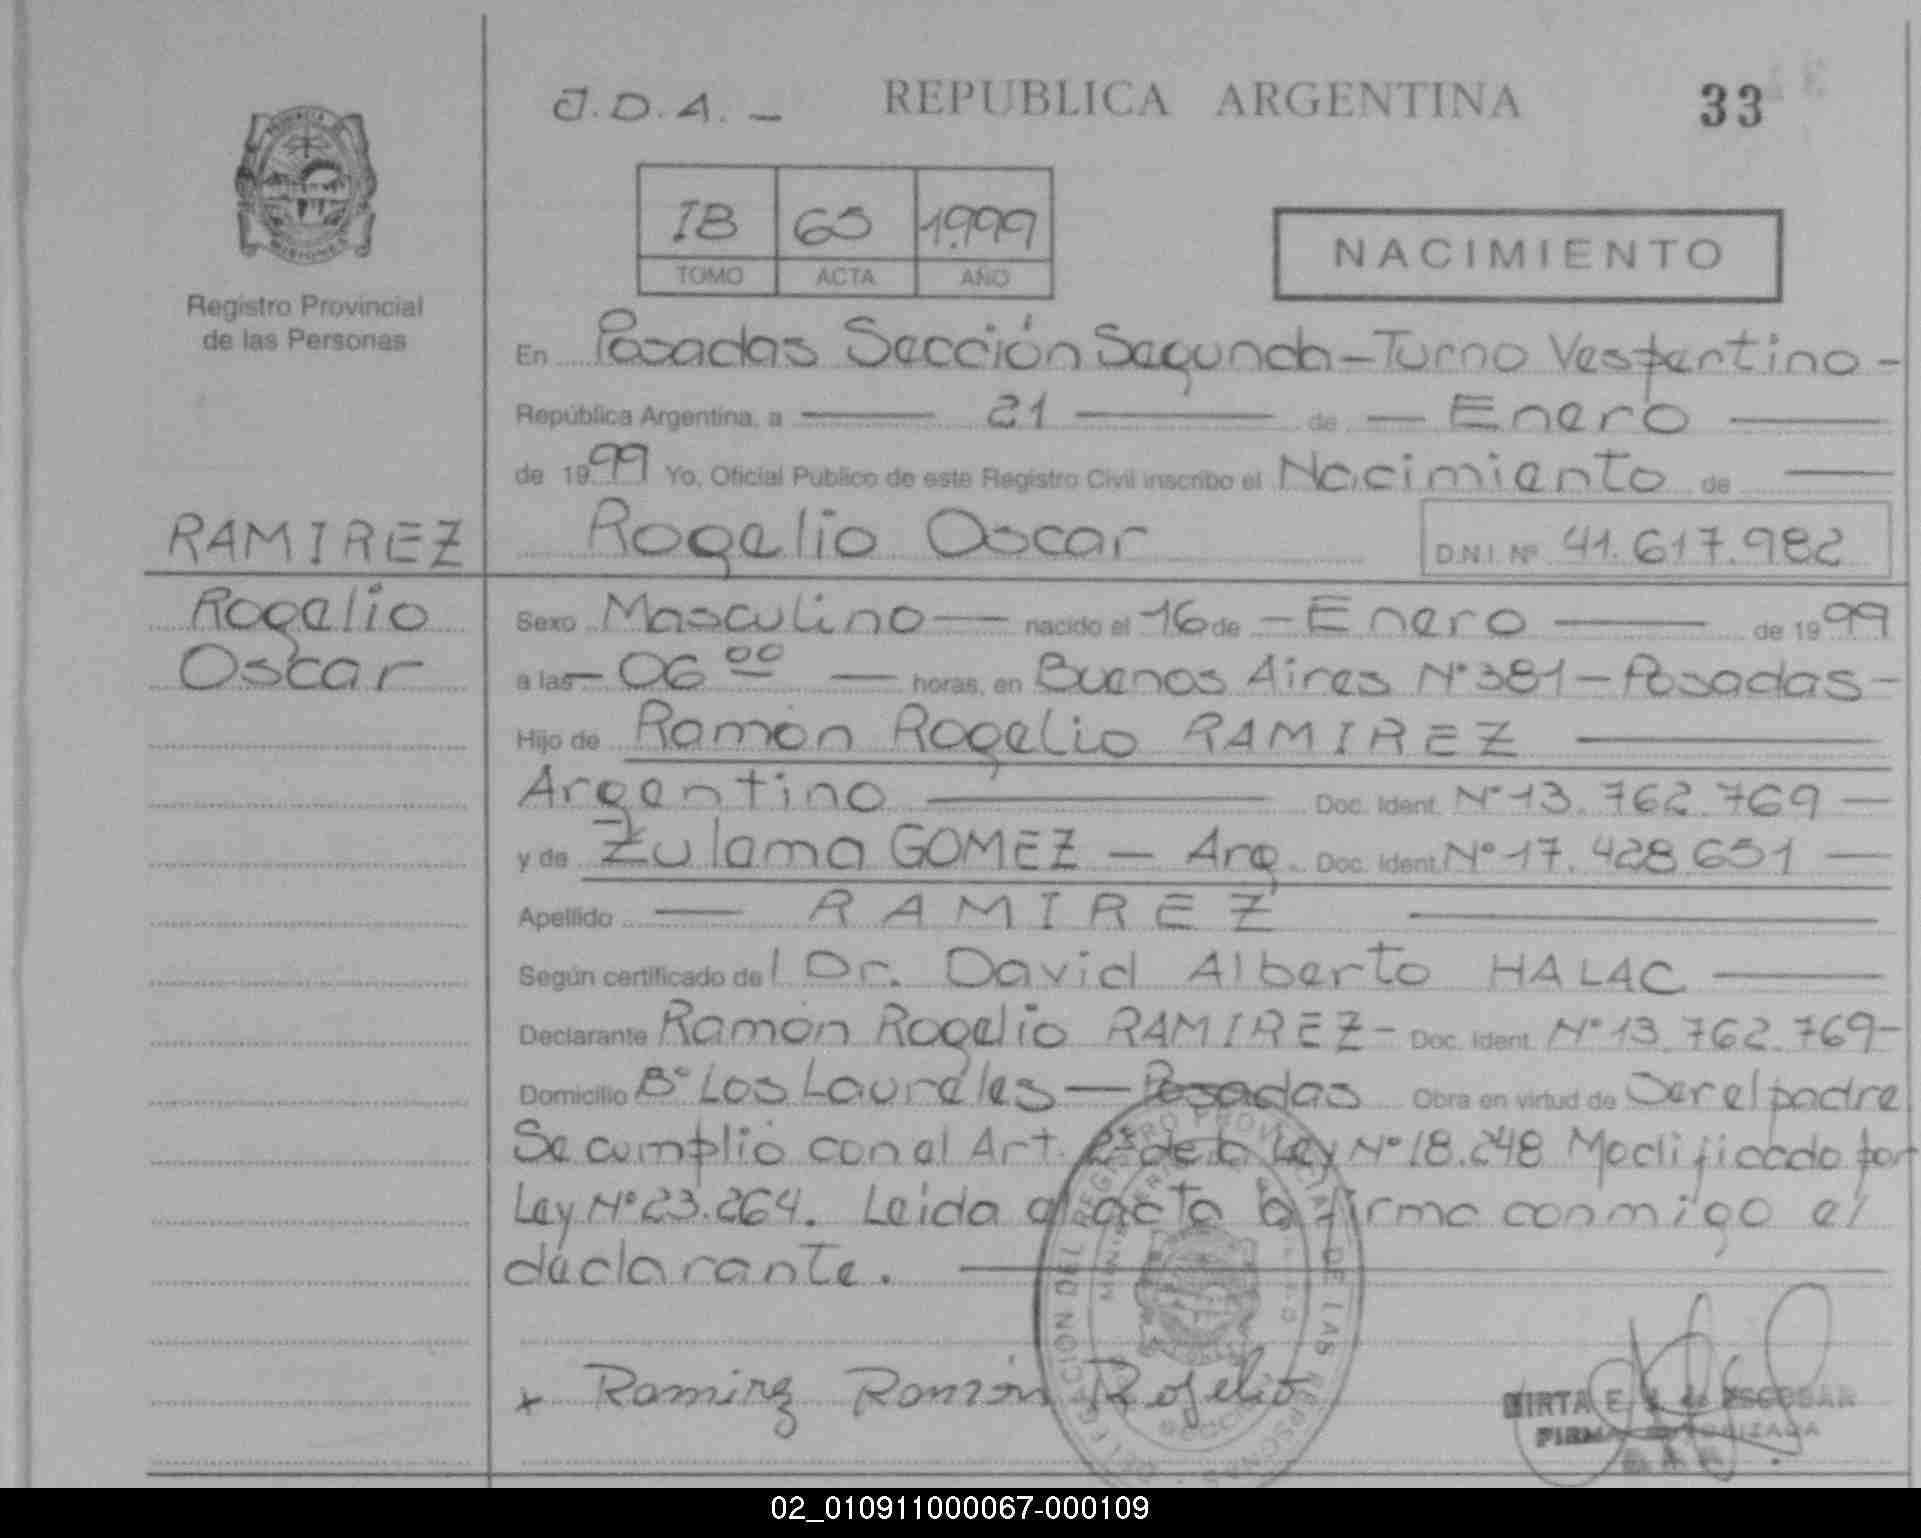 J.D.A. - REPUBLICA ARGENTINA 33
IB 65 1.999
TOMO ACTA AÑO
NACIMIENTO
Registro Provincial
de las Personas
En Posadas Sección Segunda - Turno Vespertino -
República Argentina, a 21 de Enero
de 1999 Yo, Oficial Público de este Registro Civil inscribo el Nacimiento de
RAMIREZ Rogelio Oscar D.N.I. Nº 41.617.982
Rogelio
Oscar
Sexo Masculino nacido el 16 de Enero de 1999
a las 06 00 horas, en Buenos Aires Nº 381 - Posadas -
Hijo de Ramón Rogelio RAMIREZ
Argentino Doc. Ident. Nº 13.762.769
y de Zulama GOMEZ - Arg. Doc. Ident. Nº 17.428.651
Apellido RAMIREZ
Según certificado del Dr. David Alberto HALAC
Declarante Ramón Rogelio RAMIREZ - Doc. Ident. Nº 13.762.769 -
Domicilio Bº Los Laureles - Posadas Obra en virtud de Ser el padre
Se cumplió con el Art. 2º de la Ley Nº 18.248 Modificado por
Ley Nº 23.264. Leida el acta la firma conmigo el
declarante.
x Ramirez Ramón Rogelio
MIRTA E. de ESCOBAR
FIRMA AUTORIZADA
02_010911000067-000109